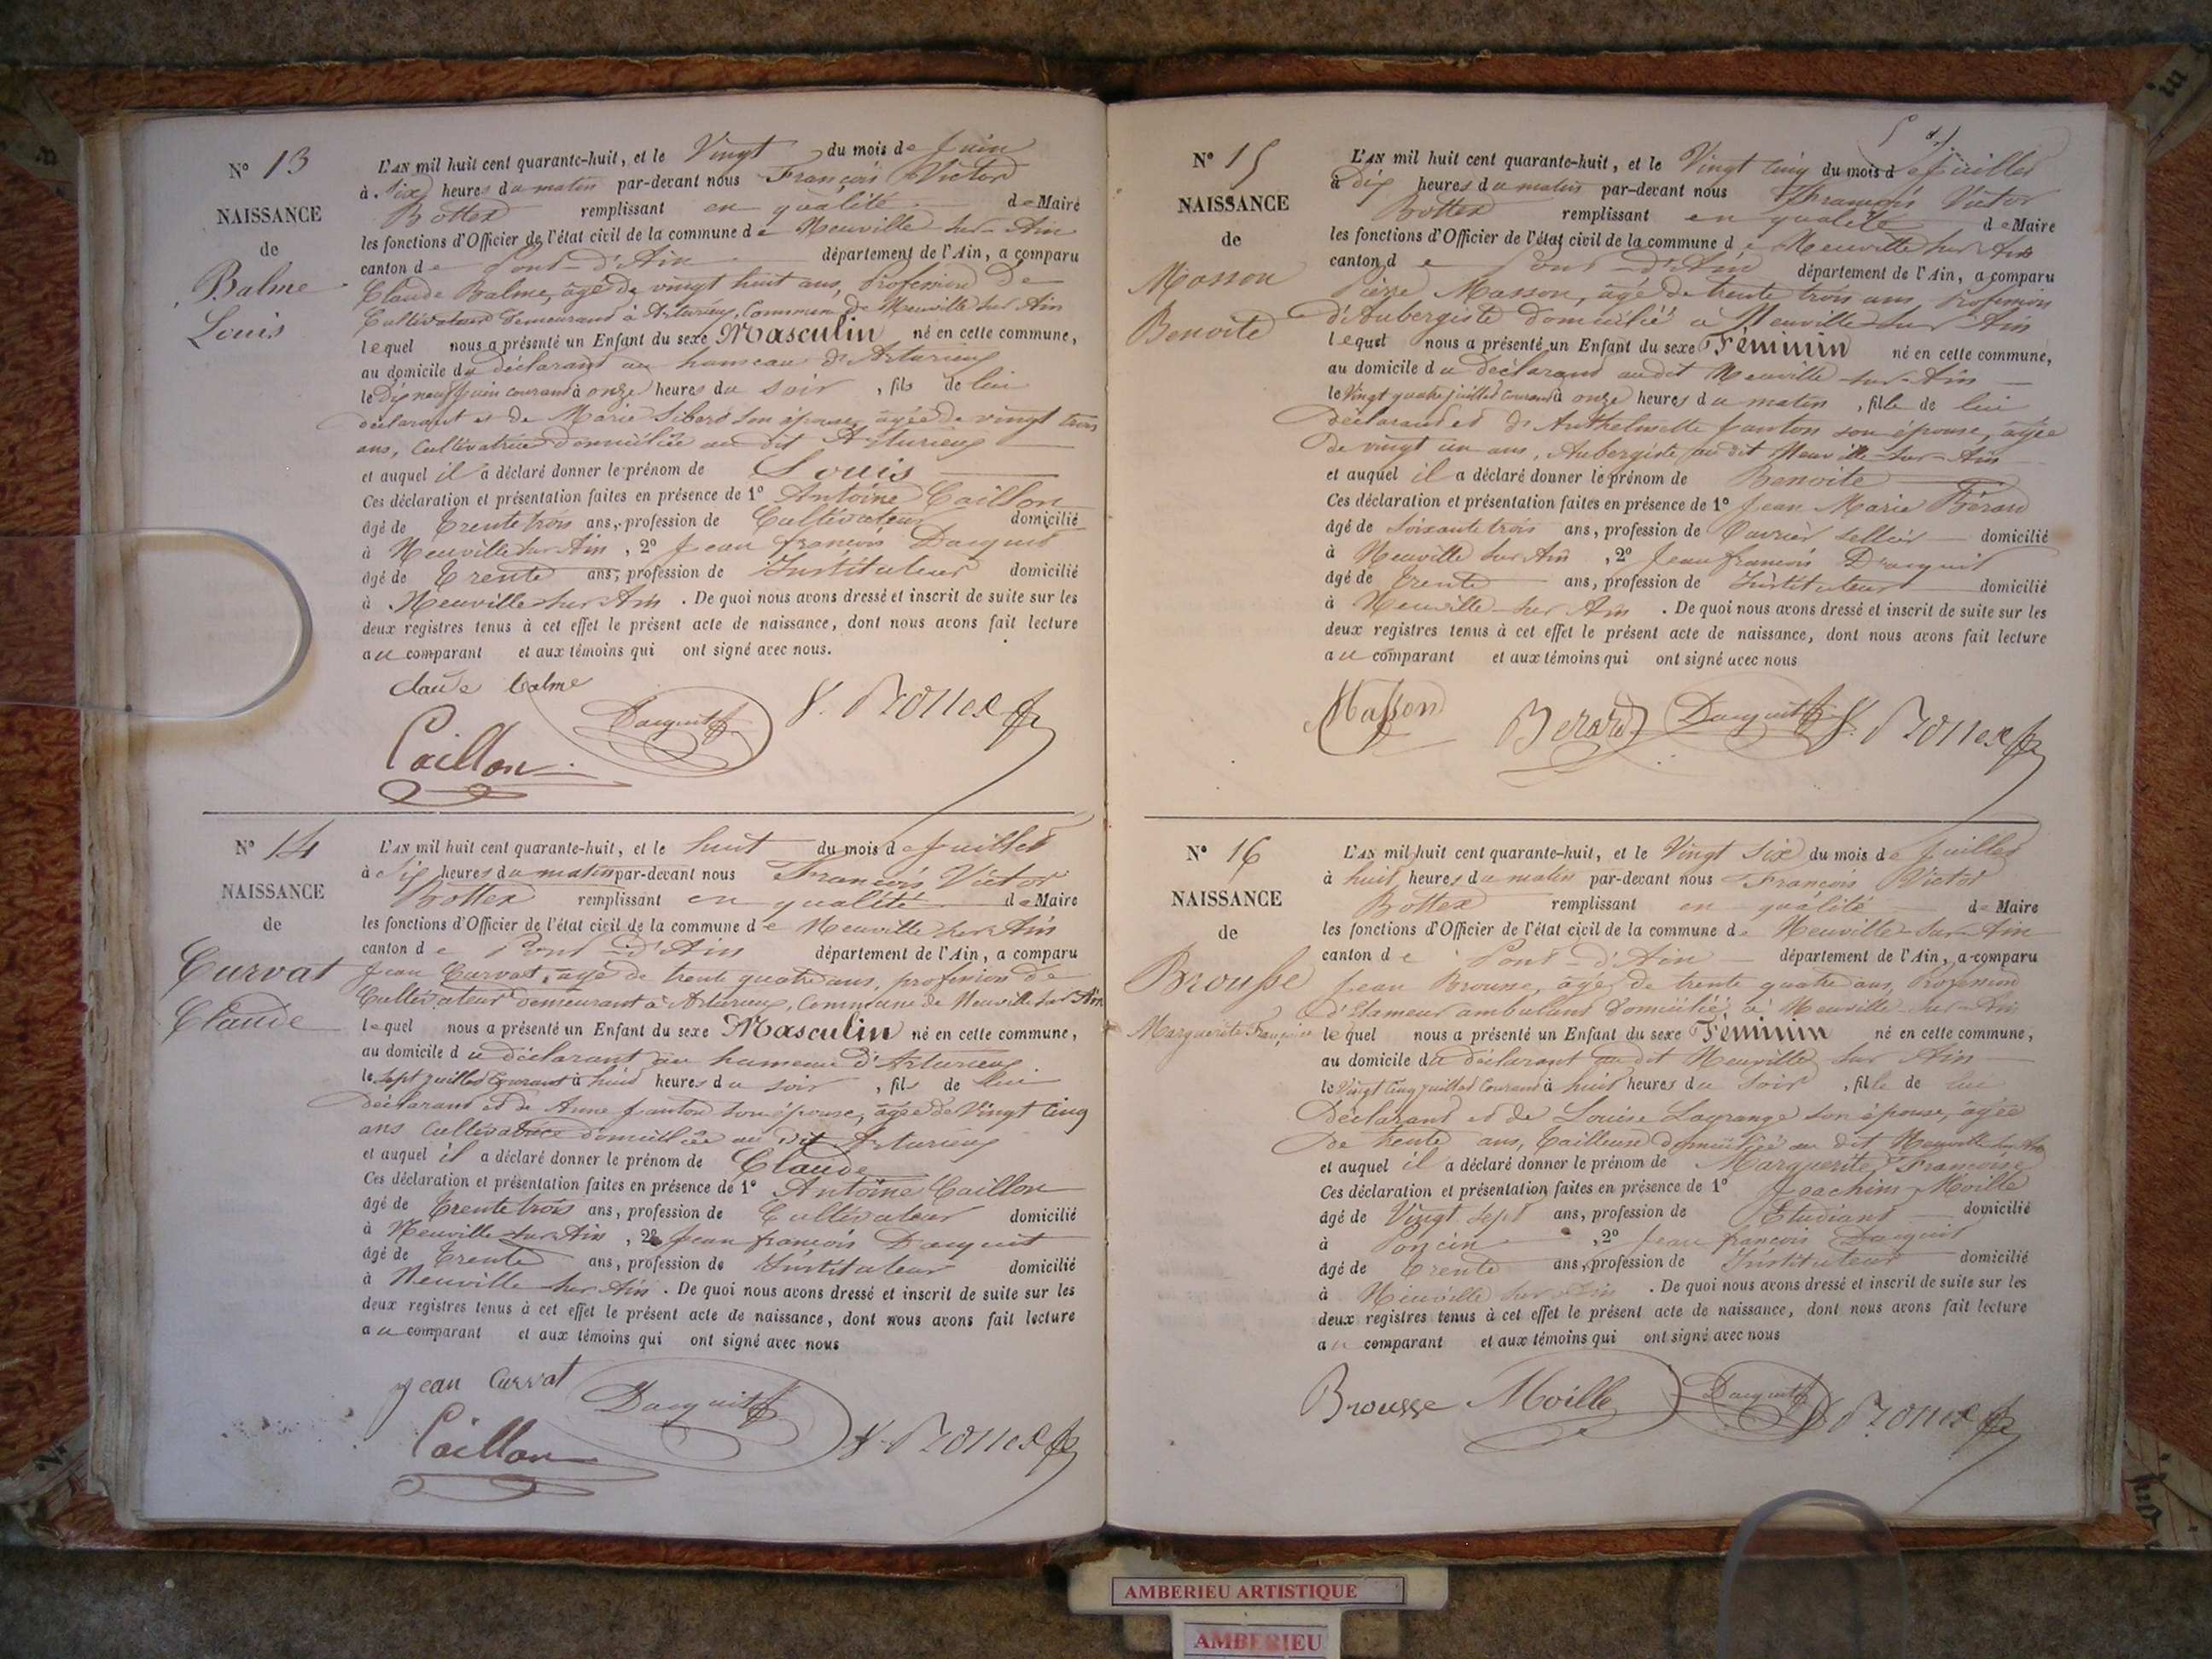 N° 13
NAISSANCE
de
Balme
Louis
L'AN mil huit cent quarante-huit, et le Vingt du mois de Juin
à Six heures du matin par-devant nous François Victor
Bottex remplissant en qualité de Maire
les fonctions d'Officier de l'état civil de la commune de Neuville sur Ain
canton de Pont-d'Ain département de l'Ain, a comparu
Claude Balme, âgé de vingt huit ans, Profession de
Cultivateur demeurant à Arturieux, Commune de Neuville sur Ain
lequel nous a présenté un Enfant du sexe Masculin né en cette commune,
au domicile du déclarant au hameau d'Arturieux
le Dix neuf Juin courant à onze heures du soir, fils de lui
déclarant et de Marie son épouse, âgée de vingt trois
ans, Cultivatrice domiciliée au dit Arturieux
et auquel il a déclaré donner le prénom de Louis
Ces déclaration et présentation faites en présence de 1° Antoine Caillon
âgé de Trente trois ans, profession de Cultivateur domicilié
à Neuville sur Ain, 2° Jean françois Dacquit
âgé de Trente ans, profession de Instituteur domicilié
à Neuville sur Ain. De quoi nous avons dressé et inscrit de suite sur les
deux registres tenus à cet effet le présent acte de naissance, dont nous avons fait lecture
au comparant et aux témoins qui ont signé avec nous.
claude balme
Dacquit V. Bottex
Caillon
N° 14
NAISSANCE
de
Curvat
Claude
L'AN mil huit cent quarante-huit, et le huit du mois de Juillet
à Six heures du matin par-devant nous François Victor
Bottex remplissant en qualité de Maire
les fonctions d'Officier de l'état civil de la commune de Neuville sur Ain
canton de Pont d'Ain département de l'Ain, a comparu
Jean Curvat, âgé de trente quatre ans, profession de
Cultivateur demeurant à Arturieux, Commune de Neuville sur Ain
lequel nous a présenté un Enfant du sexe Masculin né en cette commune,
au domicile du déclarant au hameau d'Arturieux
le Sept juillet Courant à huit heures du soir, fils de lui
déclarant et de Anne fanton son épouse, âgée de Vingt Cinq
ans Cultivatrice domiciliée au dit Arturieux
et auquel il a déclaré donner le prénom de Claude
Ces déclaration et présentation faites en présence de 1° Antoine Caillon
âgé de Trente trois ans, profession de Cultivateur domicilié
à Neuville sur Ain, 2° Jean françois Dacquit
âgé de Trente ans, profession de Instituteur domicilié
à Neuville sur Ain. De quoi nous avons dressé et inscrit de suite sur les
deux registres tenus à cet effet le présent acte de naissance, dont nous avons fait lecture
au comparant et aux témoins qui ont signé avec nous
jean Curvat
Dacquit
Caillon V. Bottex
N° 15
NAISSANCE
de
Masson
Benoite
L'AN mil huit cent quarante-huit, et le Vingt Cinq du mois de Juillet
à Dix heures du matin par-devant nous François Victor
Bottex remplissant en qualité de Maire
les fonctions d'Officier de l'état civil de la commune de Neuville sur Ain
canton de Pont-d'Ain département de l'Ain, a comparu
Pierre Masson, âgé de trente trois ans Profession
d'Aubergiste domicilié à Neuville sur Ain
lequel nous a présenté un Enfant du sexe Féminin né en cette commune,
au domicile du Déclarant audit Neuville sur-Ain
le Vingt quatre juillet Courant à onze heures du matin, fille de lui
Déclarant et d'Anthelmette fanton son épouse, âgée
de vingt un ans, Aubergiste au dit Neuville-sur-Ain
et auquel il a déclaré donner le prénom de Benoite
Ces déclaration et présentation faites en présence de 1° Jean Marie Bérard
âgé de Soixante trois ans, profession de Ouvrier Sellier domicilié
à Neuville sur Ain, 2° Jean françois Dacquit
âgé de Trente ans, profession de Instituteur domicilié
à Neuville-sur Ain. De quoi nous avons dressé et inscrit de suite sur les
deux registres tenus à cet effet le présent acte de naissance, dont nous avons fait lecture
au comparant et aux témoins qui ont signé avec nous
Masson Berard Dacquit V. Bottex
N° 16
NAISSANCE
de
Brousse
Marguerite Françoise
L'AN mil huit cent quarante-huit, et le Vingt Six du mois de Juillet
à huit heures du matin par-devant nous François Victor
Bottex remplissant en qualité de Maire
les fonctions d'Officier de l'état civil de la commune de Neuville-sur-Ain
canton de Pont-d'Ain département de l'Ain, a comparu
Jean Brousse, âgé de trente quatre ans, Profession
d'Etameur ambulant domicilié à Neuville-sur-Ain
lequel nous a présenté un Enfant du sexe Féminin né en cette commune,
au domicile du déclarant au dit Neuville sur Ain
le Vingt Cinq juillet Courant à huit heures du Soir, fille de lui
Déclarant et de Louise Lagrange son épouse, âgée
de trente ans, Tailleuse domiciliée au dit Neuville sur Ain
et auquel il a déclaré donner le prénom de Marguerite Françoise
Ces déclaration et présentation faites en présence de 1° Joachim Moille
âgé de Vingt Sept ans, profession de Etudiant domicilié
à Poncin, 2° Jean françois Dacquit
âgé de Trente ans, profession de Instituteur domicilié
à Neuville sur Ain. De quoi nous avons dressé et inscrit de suite sur les
deux registres tenus à cet effet le présent acte de naissance, dont nous avons fait lecture
au comparant et aux témoins qui ont signé avec nous
Brousse Moille Dacquit V. Bottex
AMBERIEU ARTISTIQUE
AMBERIEU